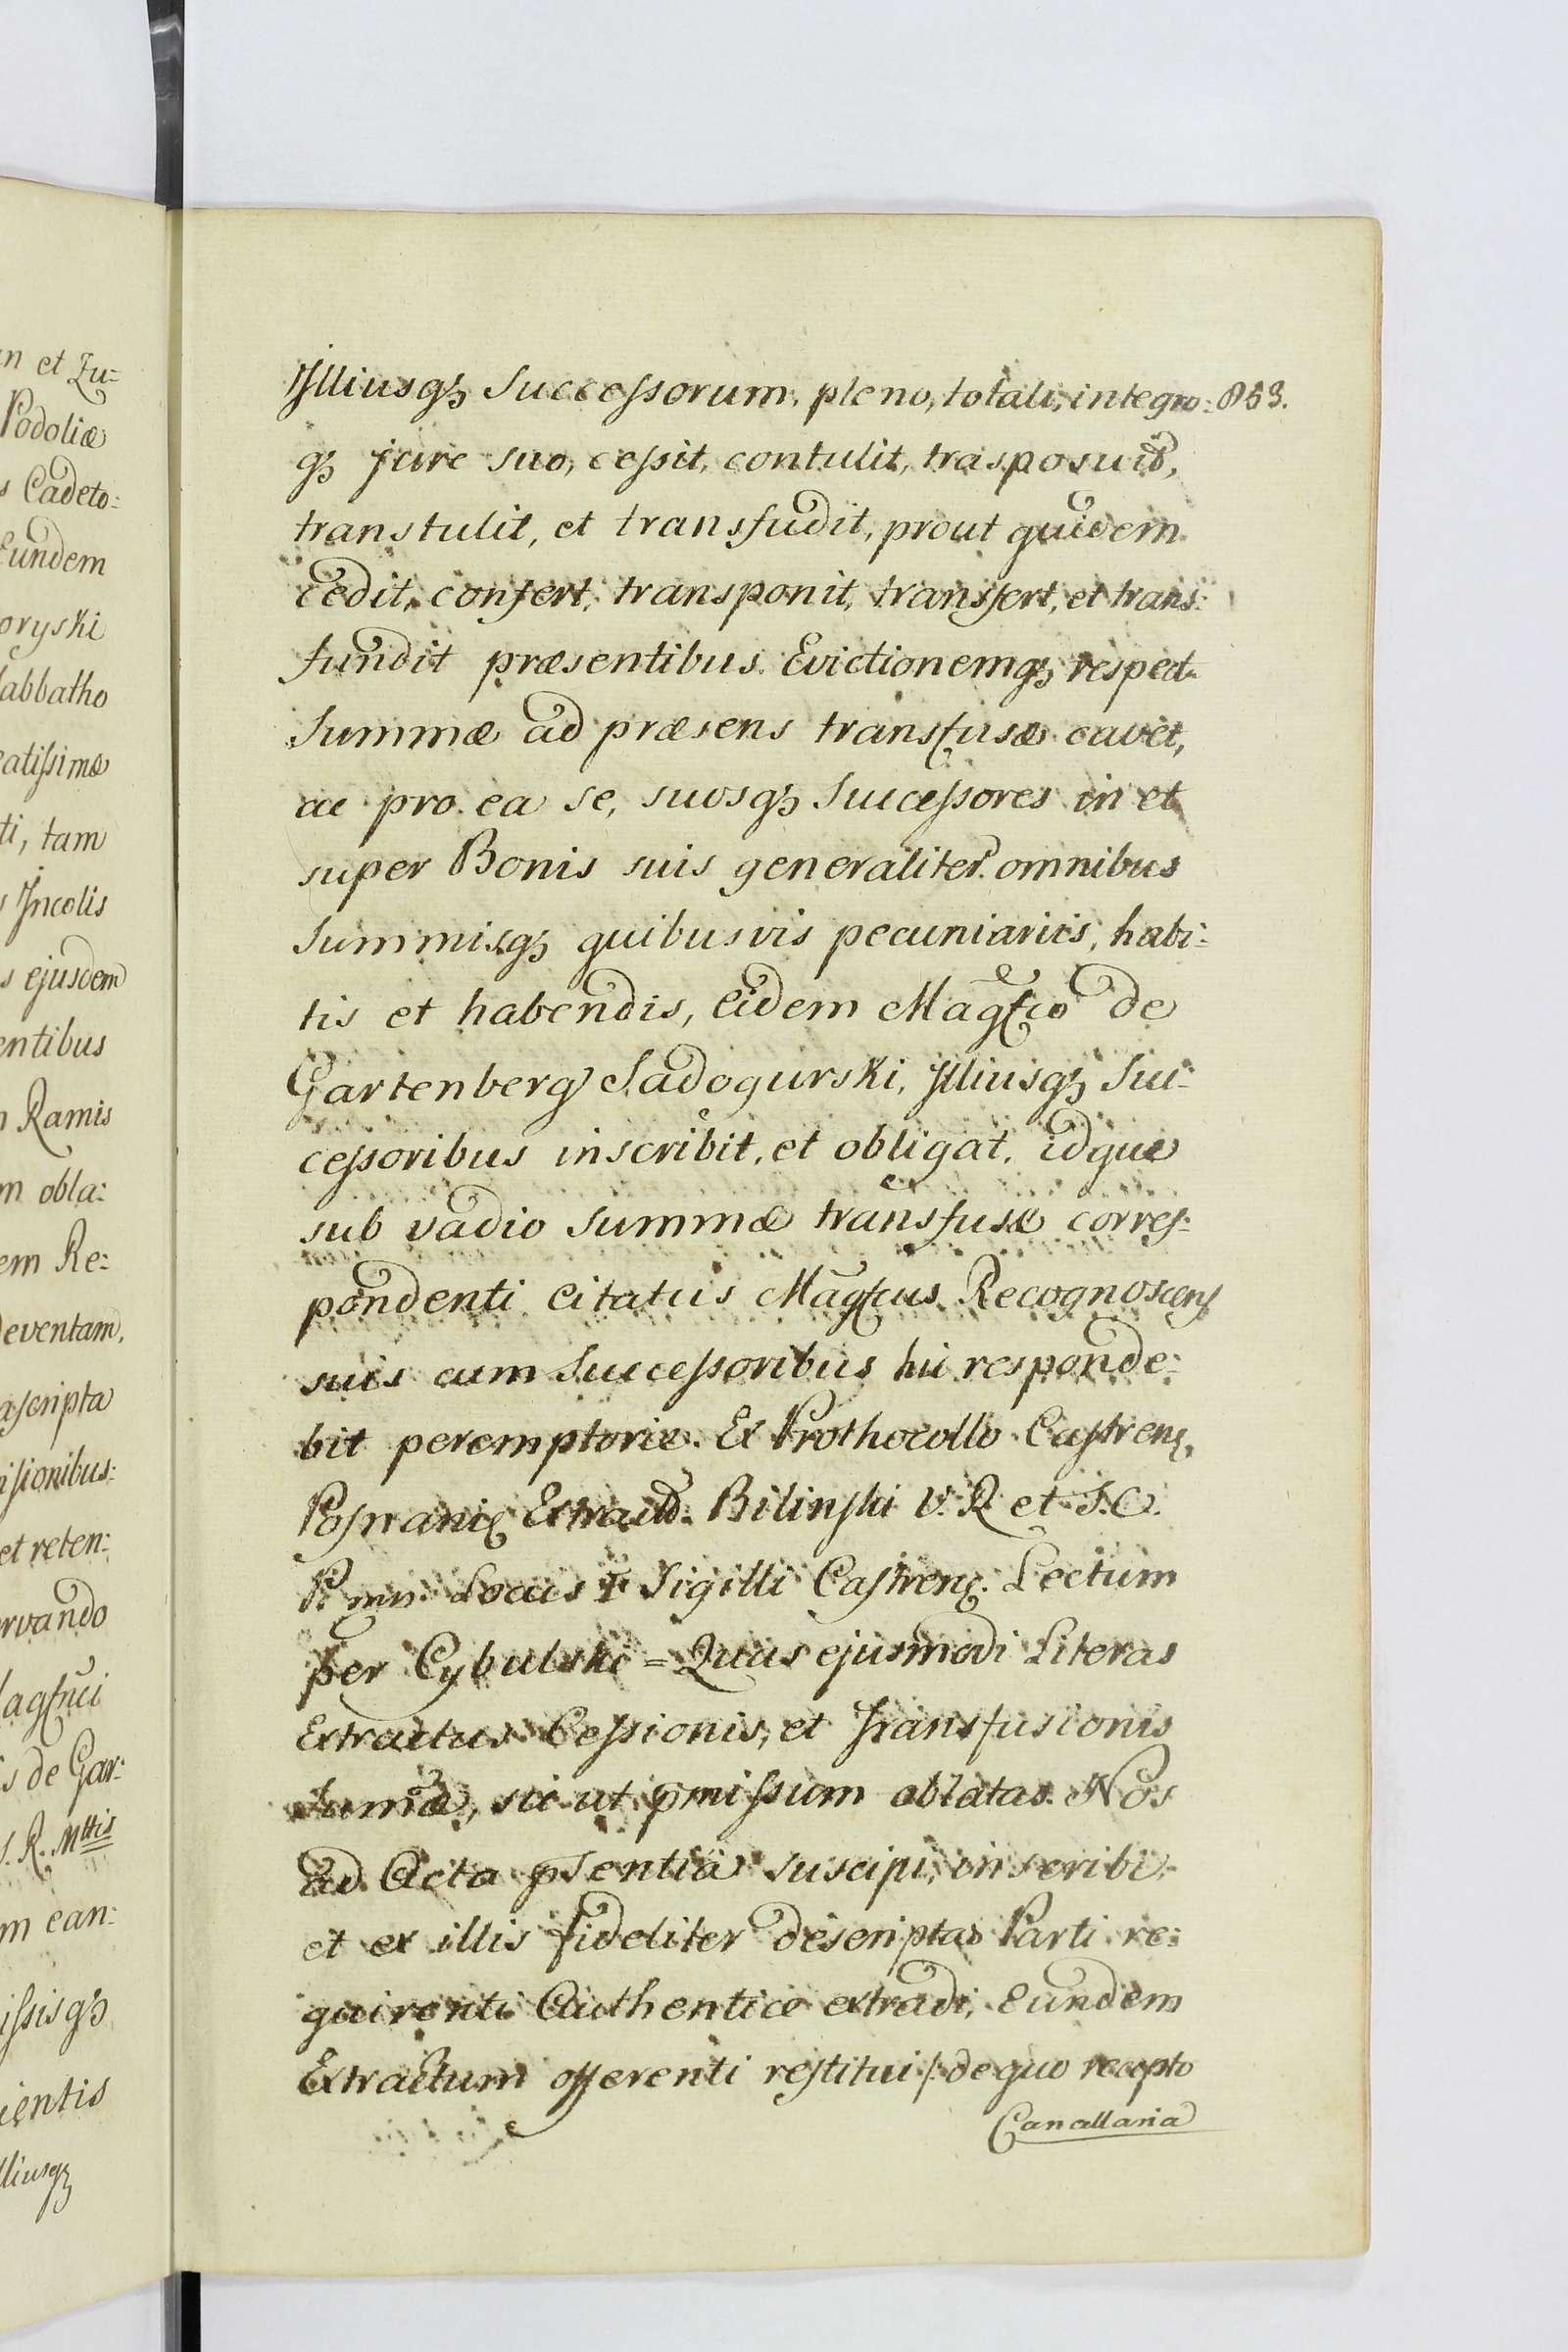 n et Zu:
Podoliæ
s Cadeto:
Eundem
oryski
Sabbatho
catissimæ
ti, tam
s Incolis
s ejusdem
entibus
n Ramis
m obla:
em Re:
deventam,
ascripta
isionibus:
et reten:
ervando
s de Gar:
S. R. Mttis
m ean:
issisqȝ
ientis
lliusqȝ
Illiusqȝ Successorum, pleno, totali, integro: 853.
qȝ jure suo, cessit, contulit, trasposuit,
transtulit, et transfudit, prout quidem
cedit, confert, transponit, transfert, et trans:
fundit præsentibus. Evictionemqȝ respect.
Summæ ad præsens transfusæ cavet,
ac pro ea se, suosqȝ Successores in et
super Bonis suis generaliter omnibus
Summisqȝ quibusvis pecuniariis, habi:
tis et habendis, Eidem Magfco de
Gartenberg Sadogurski, Illiusqȝ Suc:
cessoribus inscribit, et obligat, idque
sub vadio Summæ transfusæ corres:
pondenti citatus Magfcus Recognoscens
suis cum Successoribus hic responde:
bit peremptorie. Ex Prothocollo Castrenȿ
Posnaniȿ Extradd. Bilinski V. R. et J. C.
P. mp. Locus ✝ Sigilli Castrenȿ. Lectum
per Cybulski = Quas ejusmodi Literas
Extractus Cessionis, et Transfusionis
Sumæ, sic ut pmissum oblatas Nos
ad Acta psentia suscipi, inscribi,
et ex illis fideliter descriptas Parti re:
quirenti Authentice extradi, Eundem
Extractum offerenti restitui /: de quo recepto
Cancellaria